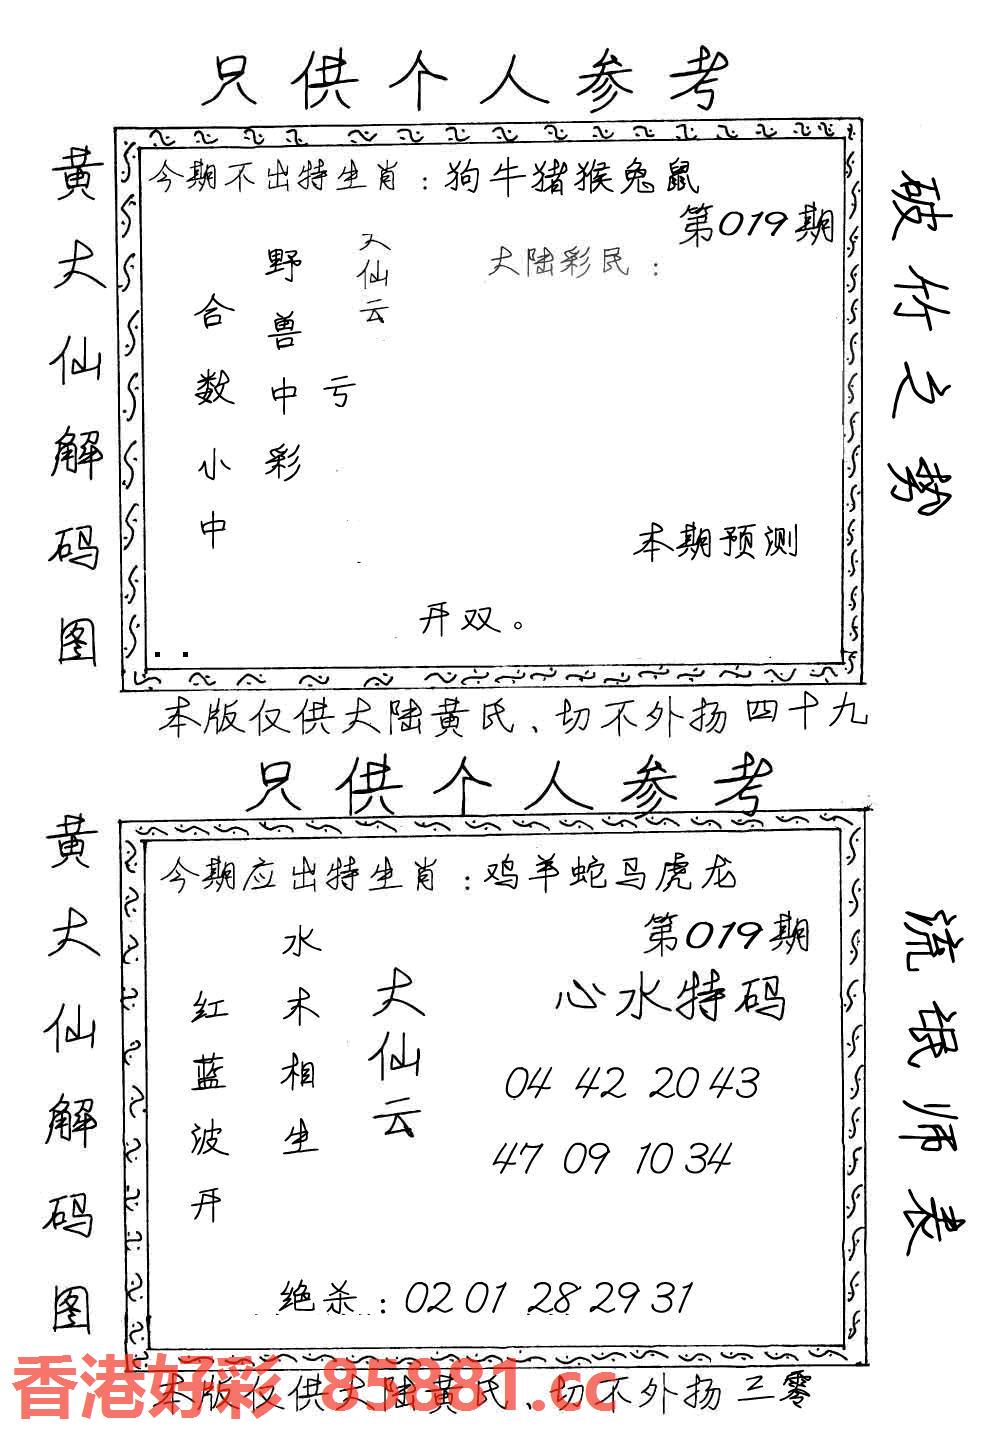 只供个人参考
黄大仙解码图
今期不出特生肖：狗牛猪猴兔鼠
第019期
大仙云
大陆彩民：
野兽中彩
亏
合数小中
本期预测
开双。
破竹之势
本版仅供大陆黄氏、切不外扬四十九
只供个人参考
黄大仙解码图
今期应出特生肖：鸡羊蛇马虎龙
第019期
心水特码
大仙云
水木相生
红蓝波开
04 42 20 43
47 09 10 34
绝杀：02 01 28 29 31
流氓师表
香港好彩 85881.cc
本版仅供大陆黄氏、切不外扬三零